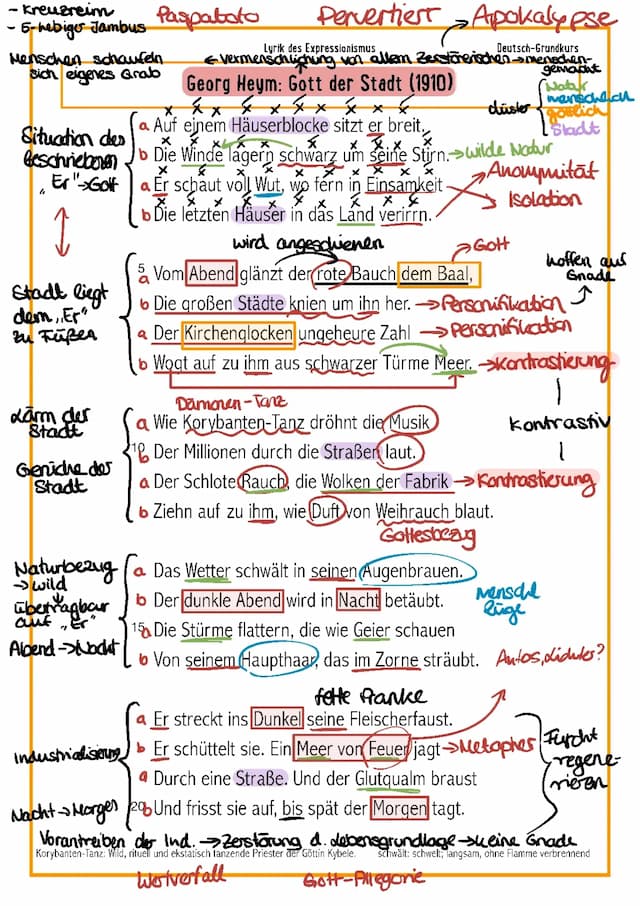 - Kreuzreim
- 5-hebiger Jambus
Pervertiert
Apokalypse
Lyrik des Expressionismus
Deutsch-Grundkurs
Menschen schaufeln
sich eigenes Grab
← Vermenschlichung von allem Zerstörerischen → menschen-
gemacht
Georg Heym: Gott der Stadt (1910)
düster
Natur
menschlich
göttlich
Stadt
Situation des
Beschriebenen
"Er" → Gott
a Auf einem Häuserblocke sitzt er breit,
b Die Winde lagern schwarz um seine Stirn. → wilde Natur
a Er schaut voll Wut, wo fern in Einsamkeit
b Die letzten Häuser in das Land verirrn.
Anonymität
Isolation
wird angeschienen
Gott
hoffen auf
Gnade
Stadt liegt
dem „Er"
zu Füßen
5
a Vom Abend glänzt der rote Bauch dem Baal,
b Die großen Städte knien um ihn her. → Personifikation
a Der Kirchenglocken ungeheure Zahl → Personifikation
b Wogt auf zu ihm aus schwarzer Türme Meer. → Kontrastierung
Lärm der
Stadt
Gerüche der
Stadt
Dämonen-Tanz
a Wie Korybanten-Tanz dröhnt die Musik
10
b Der Millionen durch die Straßen laut.
a Der Schlote Rauch, die Wolken der Fabrik → Kontrastierung
b Ziehn auf zu ihm, wie Duft von Weihrauch blaut.
Gottesbezug
kontrastiv
Naturbezug
→ wild
übertragbar
auf „Er"
Abend → Nacht
a Das Wetter schwält in seinen Augenbrauen.
b Der dunkle Abend wird in Nacht betäubt.
15
a Die Stürme flattern, die wie Geier schauen
b Von seinem Haupthaar, das im Zorne sträubt.
Autos, Lichter?
Industrialisierung
Nacht → Morgen
fette Pranke
a Er streckt ins Dunkel seine Fleischerfaust.
b Er schüttelt sie. Ein Meer von Feuer jagt → Metapher
a Durch eine Straße. Und der Glutqualm braust
20
b Und frisst sie auf, bis spät der Morgen tagt.
Furcht
regene-
rieren
Vorantreiben der Ind. → Zerstörung d. Lebensgrundlage → keine Gnade
Korybanten-Tanz: Wild, rituell und ekstatisch tanzende Priester der Göttin Kybele.
schwält: schwelt; langsam, ohne Flamme verbrennend
Wertverfall
Gott-Allegorie